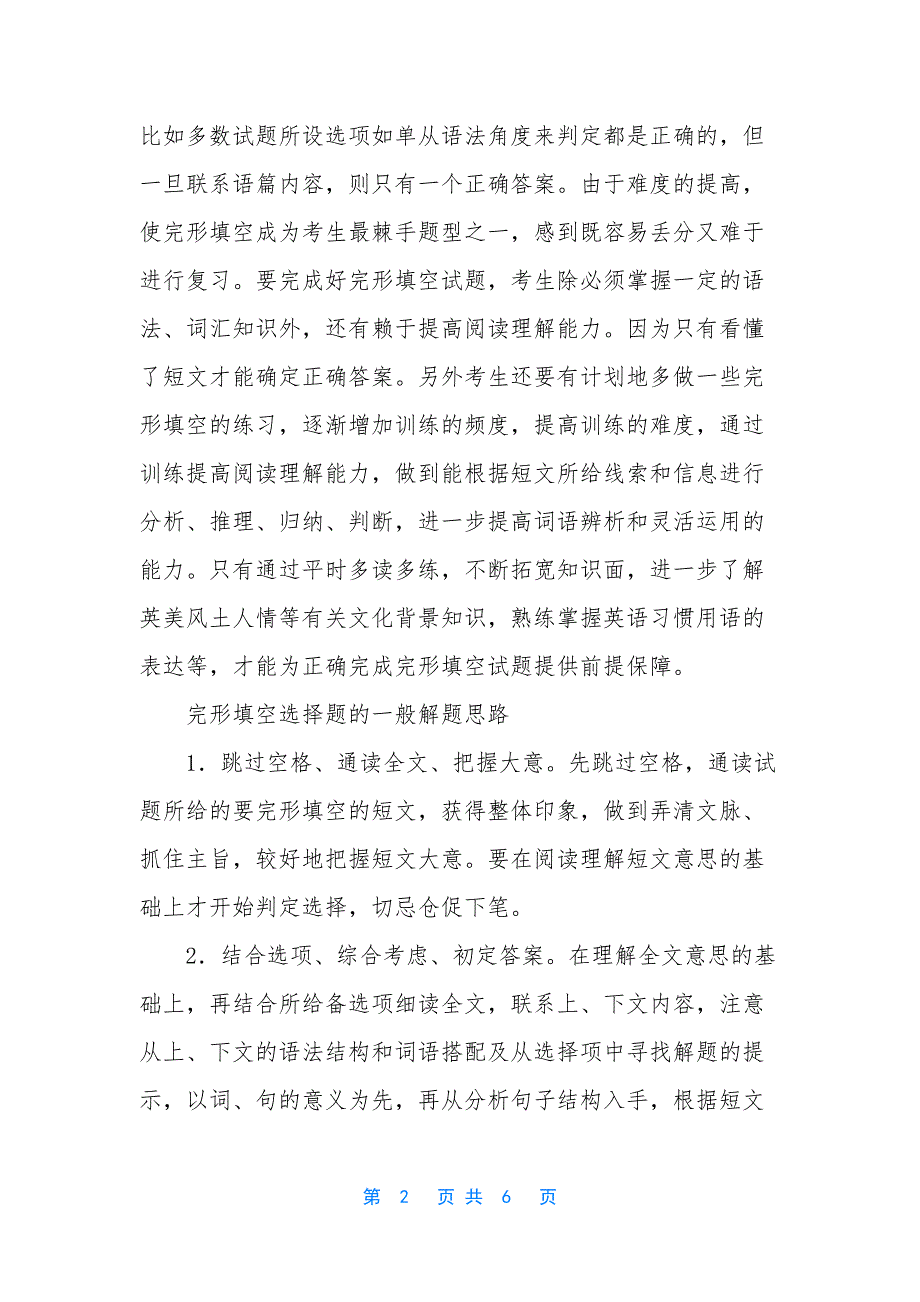 比如多数试题所设选项如单从语法角度来判定都是正确的，但
一旦联系语篇内容，则只有一个正确答案。由于难度的提高，
使完形填空成为考生最棘手题型之一，感到既容易丢分又难于
进行复习。要完成好完形填空试题，考生除必须掌握一定的语
法、词汇知识外，还有赖于提高阅读理解能力。因为只有看懂
了短文才能确定正确答案。另外考生还要有计划地多做一些完
形填空的练习，逐渐增加训练的频度，提高训练的难度，通过
训练提高阅读理解能力，做到能根据短文所给线索和信息进行
分析、推理、归纳、判断，进一步提高词语辨析和灵活运用的
能力。只有通过平时多读多练，不断拓宽知识面，进一步了解
英美风土人情等有关文化背景知识，熟练掌握英语习惯用语的
表达等，才能为正确完成完形填空试题提供前提保障。
完形填空选择题的一般解题思路
1．跳过空格、通读全文、把握大意。先跳过空格，通读试
题所给的要完形填空的短文，获得整体印象，做到弄清文脉、
抓住主旨，较好地把握短文大意。要在阅读理解短文意思的基
础上才开始判定选择，切忌仓促下笔。
2．结合选项、综合考虑、初定答案。在理解全文意思的基
础上，再结合所给备选项细读全文，联系上、下文内容，注意
从上、下文的语法结构和词语搭配及从选择项中寻找解题的提
示，以词、句的意义为先，再从分析句子结构入手，根据短文
第 2 页 共 6 页